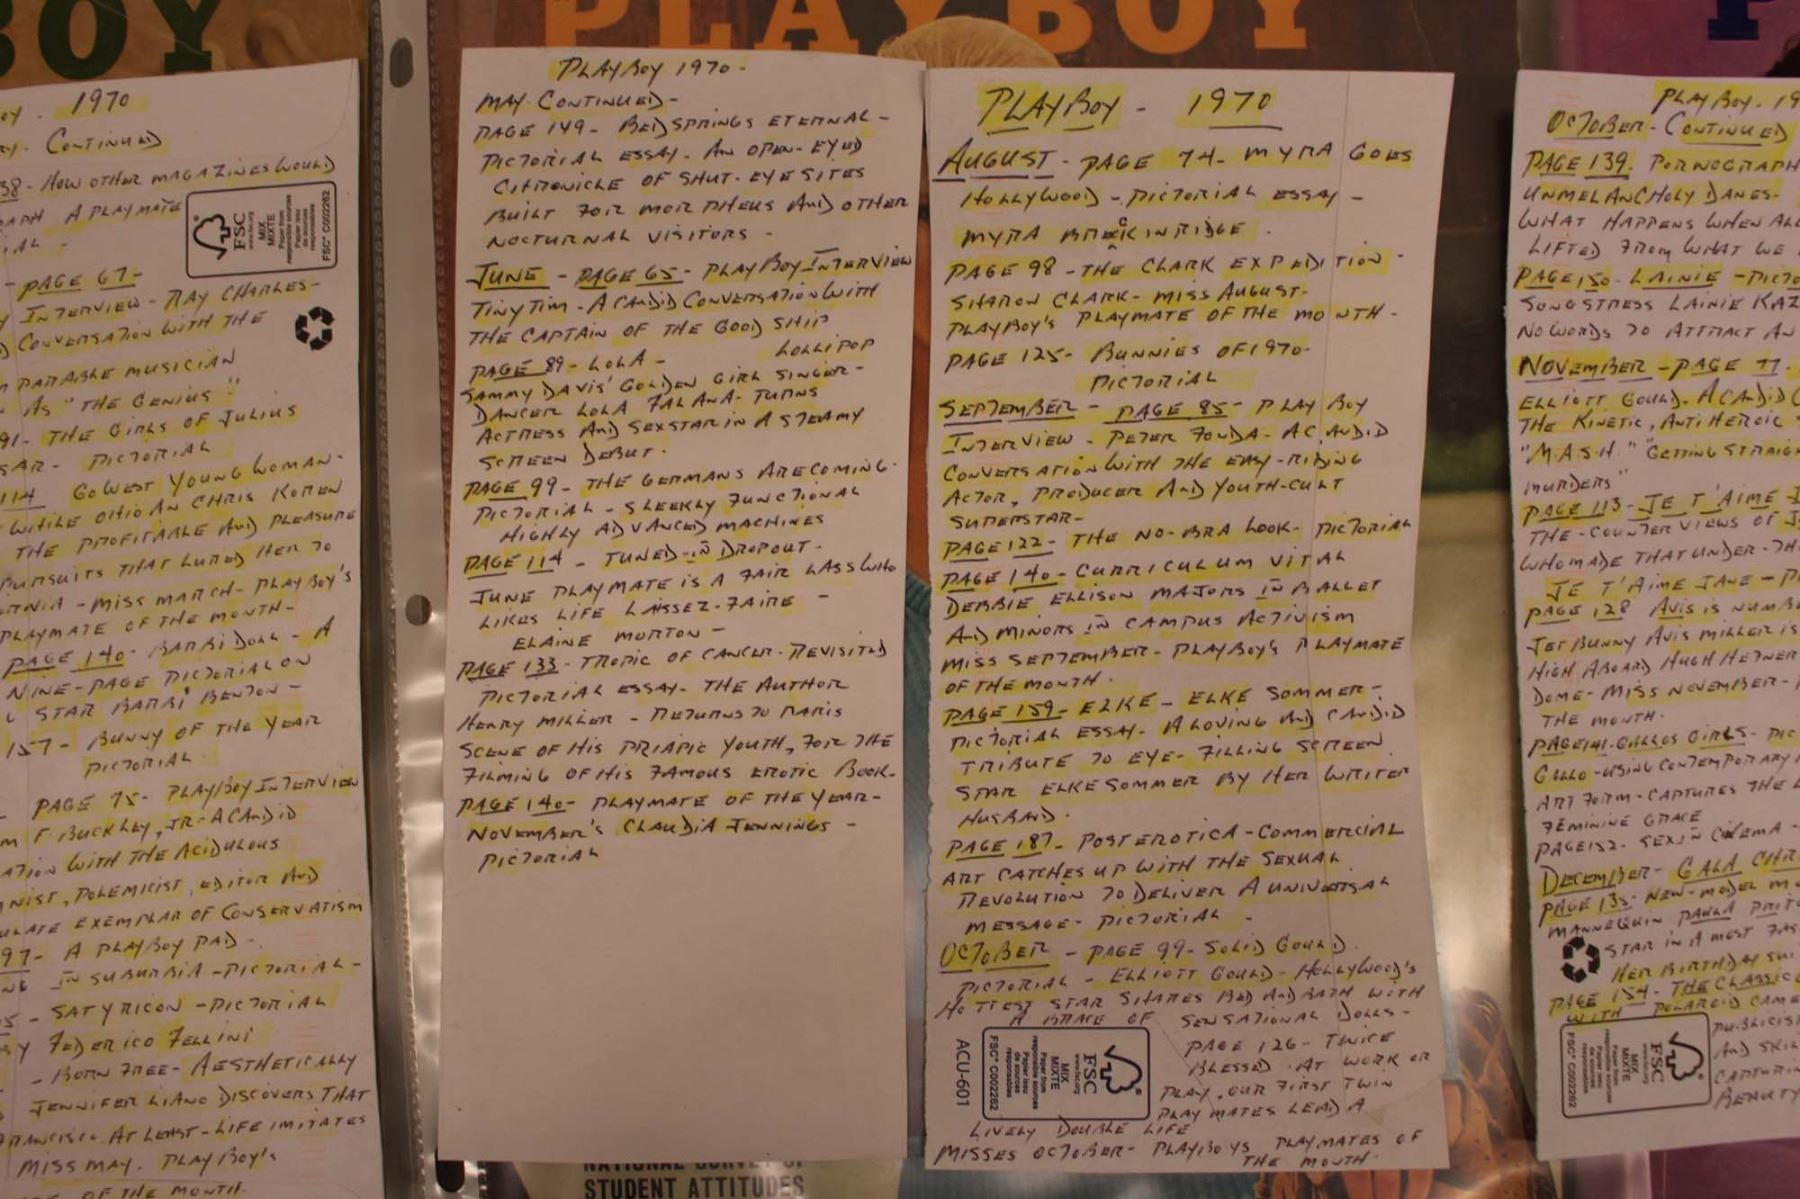 BOY
PLAYBOY
P
OY - 1970
RY. CONTINUED
38- HOW OTHER MAGAZINES WOULD
A PLAYMATE
IAL -
FSC
www.fsc.org
MIX
MIXTE
Paper from
responsible sources
Papier issu
de sources
responsables
FSC® C002262
- PAGE 67-
INTERVIEW - RAY CHARLES-
CONVERSATION WITH THE
MUSICIAN
AS "THE GENIUS"
91- THE GIRLS OF JULIUS
SAR- PICTORIAL
114 GO WEST YOUNG WOMAN-
WHILE OHIOAN CHRIS KOREN
THE PROFITABLE AND PLEASURE
PURSUITS THAT LURED HER TO
ORNIA - MISS MARCH - PLAYBOY'S
PLAYMATE OF THE MONTH-
PAGE 140- BARBI DOLL - A
NINE-PAGE PICTORIAL ON
STAR BARBI BENTON -
157- BUNNY OF THE YEAR
PICTORIAL
PAGE 75- PLAYBOY INTERVIEW
M F BUCKLEY, JR- A CANDID
ATION WITH THE ACIDULOUS
NIST, POLEMICIST, EDITOR AND
ULATE EXEMPLAR OF CONSERVATISM
97- A PLAYBOY PAD-
IN SUBURBIA - PICTORIAL -
SATYRICON - PICTORIAL
Y FEDERICO FELLINI
- BORN FREE- AESTHETICALLY
JENNIFER LIANO DISCOVERS THAT
FRANCISCO. AT LEAST- LIFE IMITATES
MISS MAY. PLAYBOY'S
OF THE MONTH.
PLAYBOY 1970-
MAY CONTINUED-
PAGE 149- BEDSPRINGS ETERNAL -
PICTORIAL ESSAY- AN OPEN-EYED
CHRONICLE OF SHUT-EYE SITES
BUILT FOR MORPHEUS AND OTHER
NOCTURNAL VISITORS -
JUNE - PAGE 65- PLAYBOY INTERVIEW
TINY TIM - A CANDID CONVERSATION WITH
THE CAPTAIN OF THE GOOD SHIP
LOLLIPOP
PAGE 89- LOLA -
SAMMY DAVIS' GOLDEN GIRL SINGER-
DANCER LOLA FALANA- TURNS
ACTRESS AND SEXSTAR IN A STEAMY
SCREEN DEBUT.
PAGE 99- THE GERMANS ARE COMING-
PICTORIAL - SLEEKLY FUNCTIONAL
HIGHLY ADVANCED MACHINES
PAGE 114 - TUNED-IN DROPOUT-
JUNE PLAYMATE IS A FAIR LASS WHO
LIKES LIFE LAISSEZ-FAIRE -
ELAINE MORTON -
PAGE 133- TROPIC OF CANCER- REVISITED
PICTORIAL ESSAY- THE AUTHOR
HENRY MILLER - RETURNS TO PARIS
SCENE OF HIS PRIAPIC YOUTH, FOR THE
FILMING OF HIS FAMOUS EROTIC BOOK-
PAGE 140- PLAYMATE OF THE YEAR-
NOVEMBER'S CLAUDIA JENNINGS -
PICTORIAL
PLAYBOY - 1970
AUGUST- PAGE 74- MYRA GOES
HOLLYWOOD - PICTORIAL ESSAY -
MYRA BRECKINRIDGE.
PAGE 98 - THE CLARK EXPEDITION -
SHARON CLARK - MISS AUGUST-
PLAYBOY'S PLAYMATE OF THE MONTH-
PAGE 125- BUNNIES OF 1970-
PICTORIAL
SEPTEMBER - PAGE 85- PLAYBOY
INTERVIEW - PETER FONDA- A CANDID
CONVERSATION WITH THE EASY-RIDING
ACTOR, PRODUCER AND YOUTH-CULT
SUPERSTAR-
PAGE 122- THE NO-BRA LOOK- PICTORIAL
PAGE 140- CURRICULUM VITAL
DEBBIE ELLISON MAJORS IN BALLET
AND MINORS IN CAMPUS ACTIVISM
MISS SEPTEMBER- PLAYBOY'S PLAYMATE
OF THE MONTH.
PAGE 159- ELKE - ELKE SOMMER-
PICTORIAL ESSAY- A LOVING AND CANDID
TRIBUTE TO EYE-FILLING SCREEN
STAR ELKE SOMMER BY HER WRITER
HUSBAND.
PAGE 187- POSTEROTICA - COMMERCIAL
ART CATCHES UP WITH THE SEXUAL
REVOLUTION TO DELIVER A UNIVERSAL
MESSAGE- PICTORIAL -
OCTOBER - PAGE 99- SOLID GOULD.
PICTORIAL - ELLIOTT GOULD- HOLLYWOOD'S
HOTTEST STAR SHARES BED AND BATH WITH
A BRACE OF SENSATIONAL DOLLS-
PAGE 126- TWICE
BLESSED AT WORK OR
PLAY, OUR FIRST TWIN
PLAYMATES LEAD A
LIVELY DOUBLE LIFE
MISSES OCTOBER- PLAYBOYS PLAYMATES OF
THE MONTH-
ACU-601
FSC
www.fsc.org
MIX
MIXTE
Paper from
responsible sources
Papier issu
de sources
responsables
FSC® C002262
PLAYBOY. 19
OCTOBER- CONTINUED
PAGE 139. PORNOGRAPH
UNMELANCHOLY DANES-
WHAT HAPPENS WHEN ALL
LIFTED FROM WHAT WE
PAGE 150- LAINIE - PICTO
SONGSTRESS LAINIE KAZ
NO WORDS TO ATTRACT AN
NOVEMBER - PAGE 77-
ELLIOTT GOULD- A CANDID C
THE KINETIC, ANTI HEROIC
"M.A.S.H." "GETTING STRAIGH
MURDERS"
PAGE 113- JE T'AIME
THE-COUNTER VIEWS OF J
WHO MADE THAT UNDER-TH
JE T'AIME JANE - P
PAGE 128 AVIS IS NUMBE
JET BUNNY AVIS MILLER IS
HIGH ABOARD HUGH HEFNER
DOME- MISS NOVEMBER -
THE MONTH.
PAGE 141- GALLOS GIRLS- PIC
GALLO - USING CONTEMPORARY
ART FORM- CAPTURES THE
FEMININE GRACE
PAGE 152- SEX IN CINEMA -
DECEMBER- GALA CHR
PAGE 135- NEW-MODEL
MANNEQUIN PAULA PRIT
STAR IN A MOST FAS
HER BIRTHDAY SUI
PAGE 154- THE CLASSIC
WITH POLAROID CAME
PUBLICIST
AND SKIL
CAPTURIN
BEAUTY
FSC
www.fsc.org
MIX
MIXTE
Paper from
responsible sources
Papier issu
de sources
responsables
FSC® C002262
NATIONAL SURVEY OF
STUDENT ATTITUDES